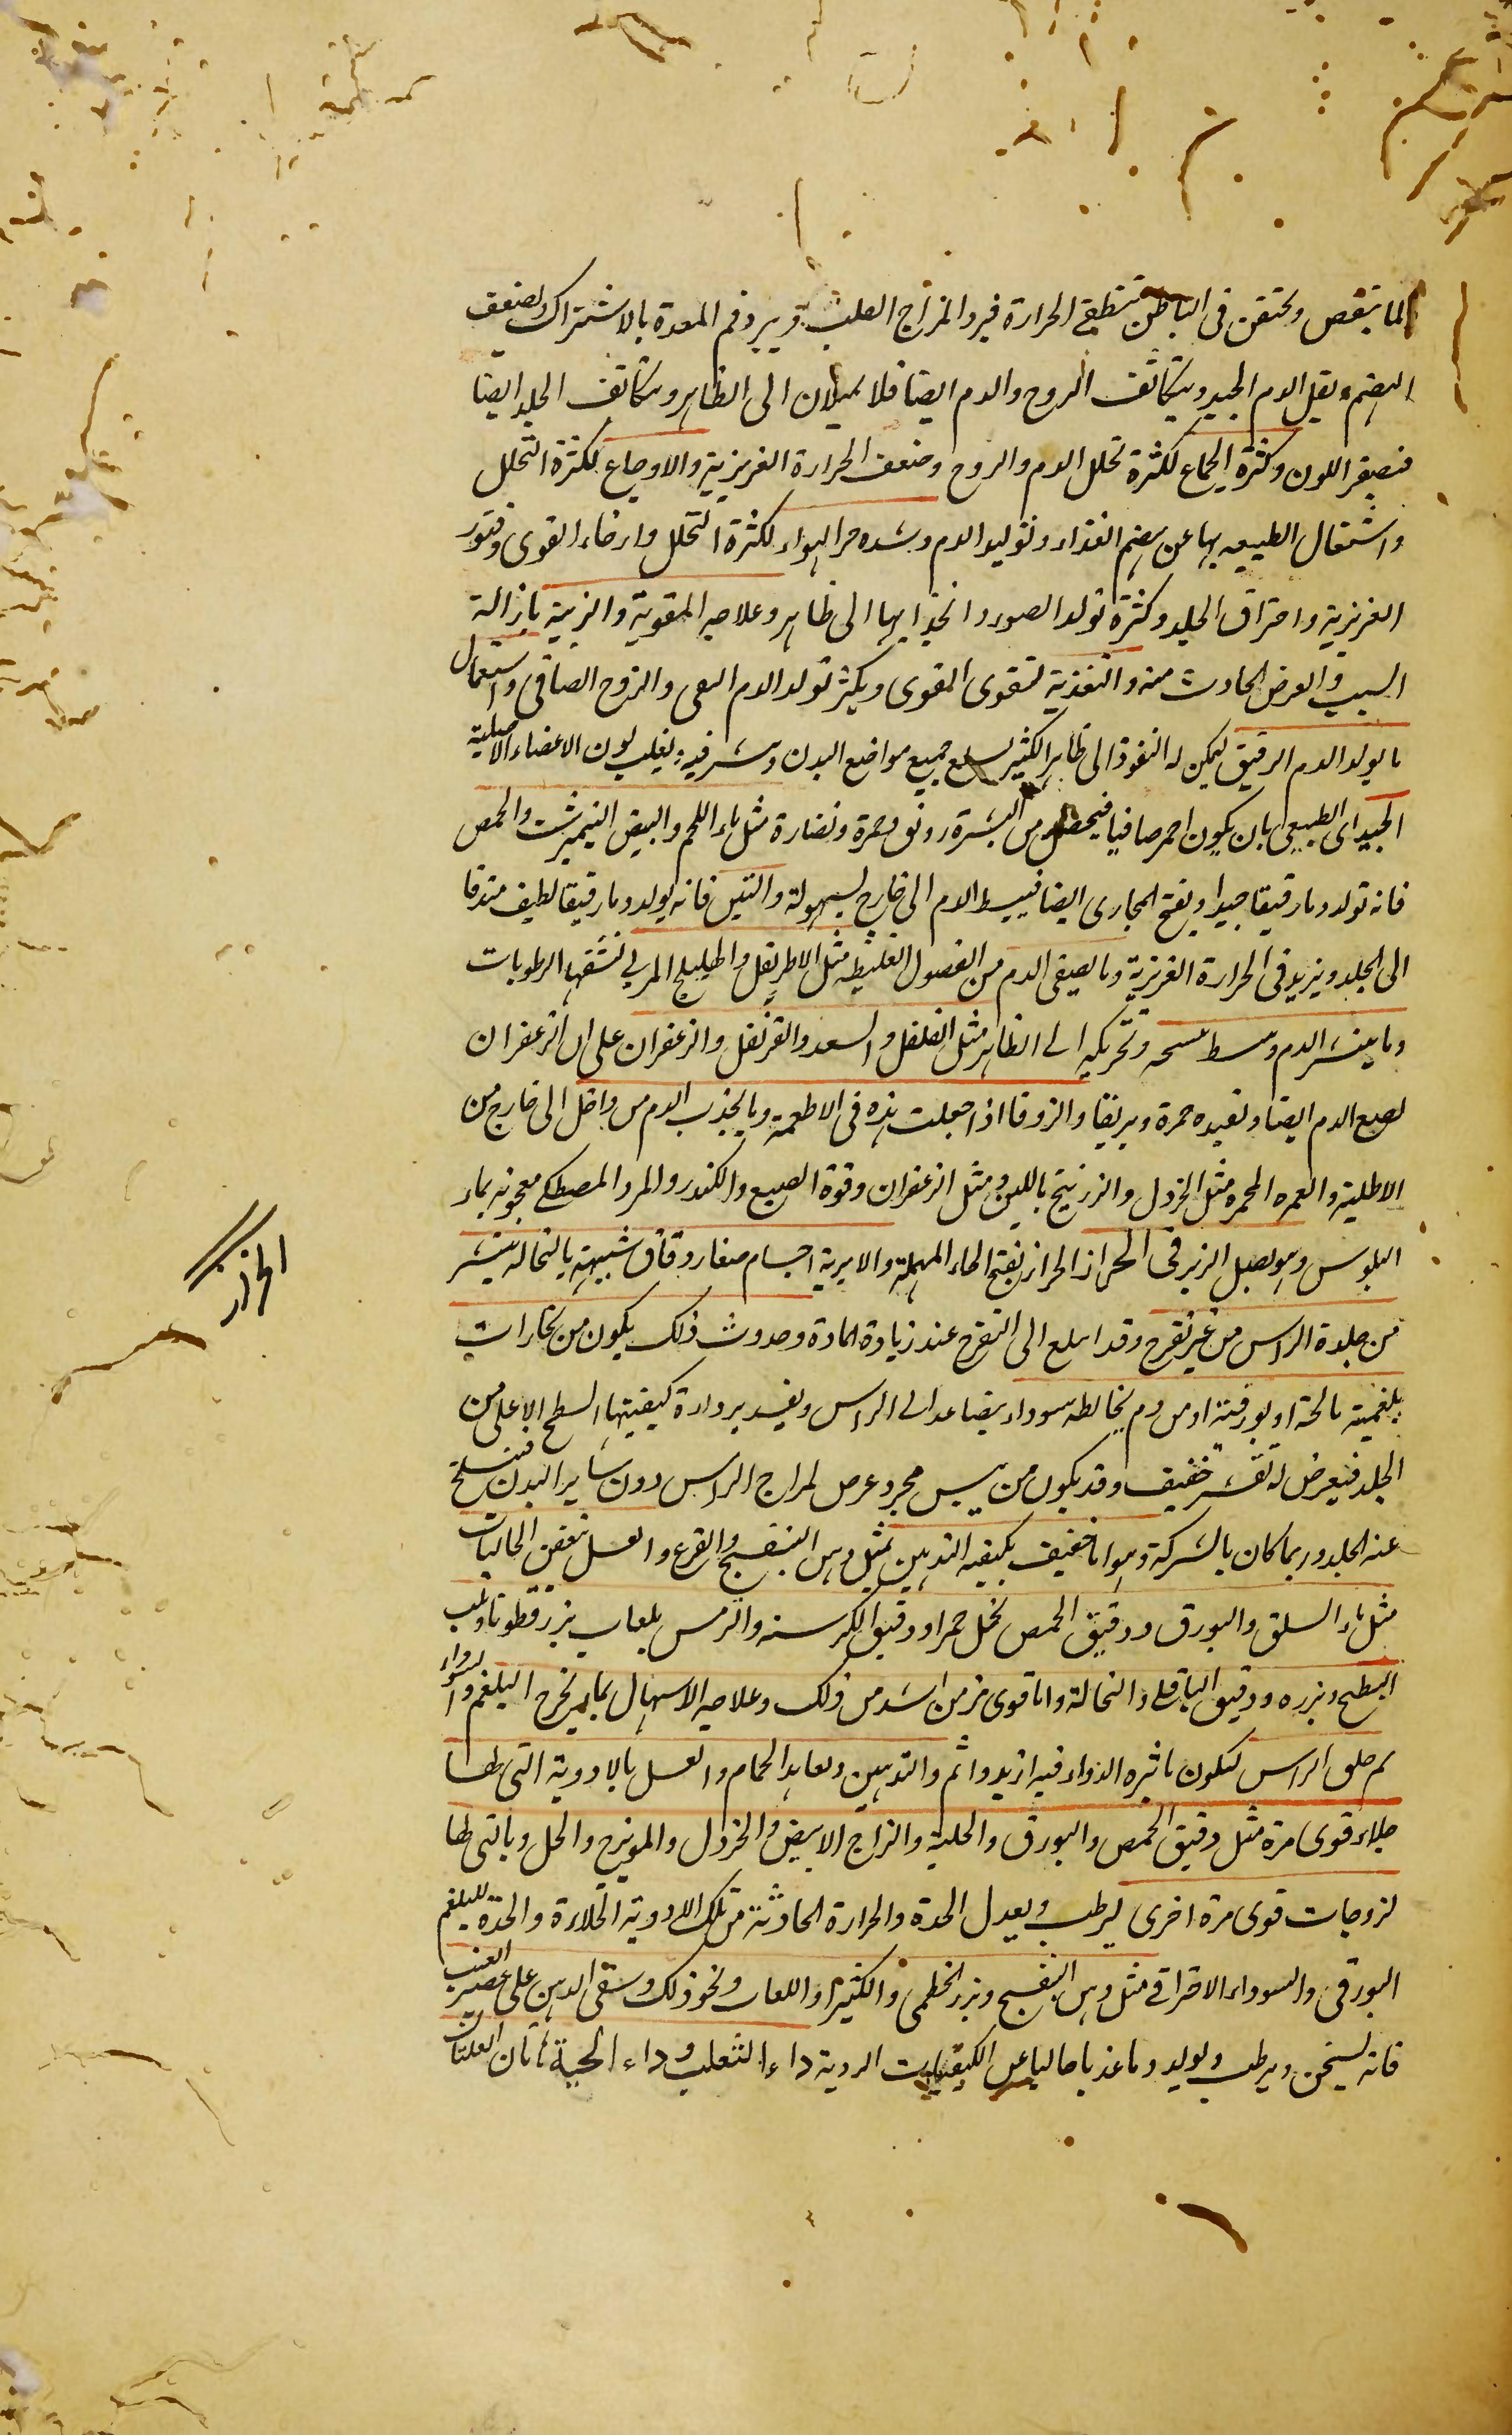 لما ينقص ويحتقن فى الباطن تنطفى الحرارة فيبرد المزاج القلب ويبرد فم المعدة بالاشتراك ويضعف
الهضم ويقل الدم الجيد ويتكاثف الروح والدم ايضا فلا يميلان الى الظاهر ويتكاثف الجلد ايضا
فيصفر اللون وكثرة الجماع لكثرة تحلل الدم والروح وضعف الحرارة الغريزية والاوجاع لكثرة التحلل
واشتغال الطبيعه بها عن هضم الغذاء وتوليد الدم وشده حر الهواء لكثرة التحلل وارخاء القوى وفتور
الغريزية واحتراق الجلد وكثرة تولد الصفراء وانجذابها الى ظاهر وعلاجه المقوية والزينة بازالة
السبب والعرض الحادث منه والتغذية لتقوى القوى ويكثر تولد الدم النقى والروح الصافى واستعمال
ما يولد الدم الرقيق ليمكن له النفوذ الى ظاهر الكثير ليسع جميع مواضع البدن وينتشر فيه ويغلب لون الاعضاء الاصلية
الجيد اى الطبيعى بان يكون احمر صافيا فيحصل من البشرة رونق وحمرة ونضارة مثل ماء اللحم والبيض النيمبرشت والحمص
فانه تولد دما رقيقا جيدا ويفتح المجارى ايضا فيبسط الدم الى خارج بسهولة والتين فانه يولد دما رقيقا لطيف مندفعا
الى الجلد ويزيد فى الحرارة الغريزية وما يصفى الدم من الفضول الغليظه مثل الاطريفل والهليلج المربى لنشفها الرطوبات
وما ينشر الدم وبسط تسخينه وتحريكه الى الظاهر مثل الفلفل والسعد والقرنفل والزعفران على ان الزعفران
يصبغ الدم ايضا ويفيده حمرة وبريقا والزوفا اذا جعلت هذه فى الاطعمة وبما يجذب الدم من داخل الى خارج من
الاطلية والغمره المحمره مثل الخردل والزرنيخ باللبن ومثل الزعفران وفوة الصبغ والكندر والمر والمصطكى معجونه بماء
البلبوس وهو بصل الزير فى الحزاز الحزاز بفتح الحاء المهملة والابرية اجسام صغار دقاق شبيهة بالنخاله ينتشر
من جلدة الراس من غير تقرح وقد يبلغ الى التقرح عند زيادة المادة وحدوث ذلك يكون من بخارات
بلغمية مالحة او بورقية او من دم يخالطه سوداء يتصاعد الى الراس ويفسد برداءة كيفيتها السطح الاعلى من
الجلد فيعرض له تقشر خفيف وقد يكون من يبس مجرد عرض لمزاج الراس دون ساير البدن فينسلخ
عنه الجلد وربما كان بالشركة وهو اما خفيف يكفيه التدهين بمثل دهن البنفسج والقرع والغسل ببعض الجاليات
مثل ماء السلق والبورق ودقيق الحمص بخل خمر او دقيق الكرسنه والترمس بلعاب بزر قطونا ولب
البطيخ وبزره ودقيق الباقلى والنخالة واما قوى مزمن اشد من ذلك وعلاجه الاسهال بما يخرج البلغم والسوداء
ثم حلق الراس ليكون تاثيره الدواء فيه ازيد واتم والتدهين وبعاهد الحمام والغسل بالادوية التى لها
جلاء قوى مرة مثل دقيق الحمص والبورق والحلبة والزاج الابيض والخردل والمويزج والخل وبالتى لها
لزوجات قوى مرة اخرى ليرطب ويعدل الحدة والحرارة الحادثة من تلك الادوية الجلاءة والحدة للبلغم
البورقى والسوداء الاحتراقى مثل دهن البنفسج وبزر الخطمى والكثيرا واللعاب ونحو ذلك وسقى الدهن على عصير العنب
فانه يسخن ويرطب ويولد دما عذبا خاليا عن الكيفيات الردية داء الثعلب وداء الحية هاتان العلتان
الحزاز